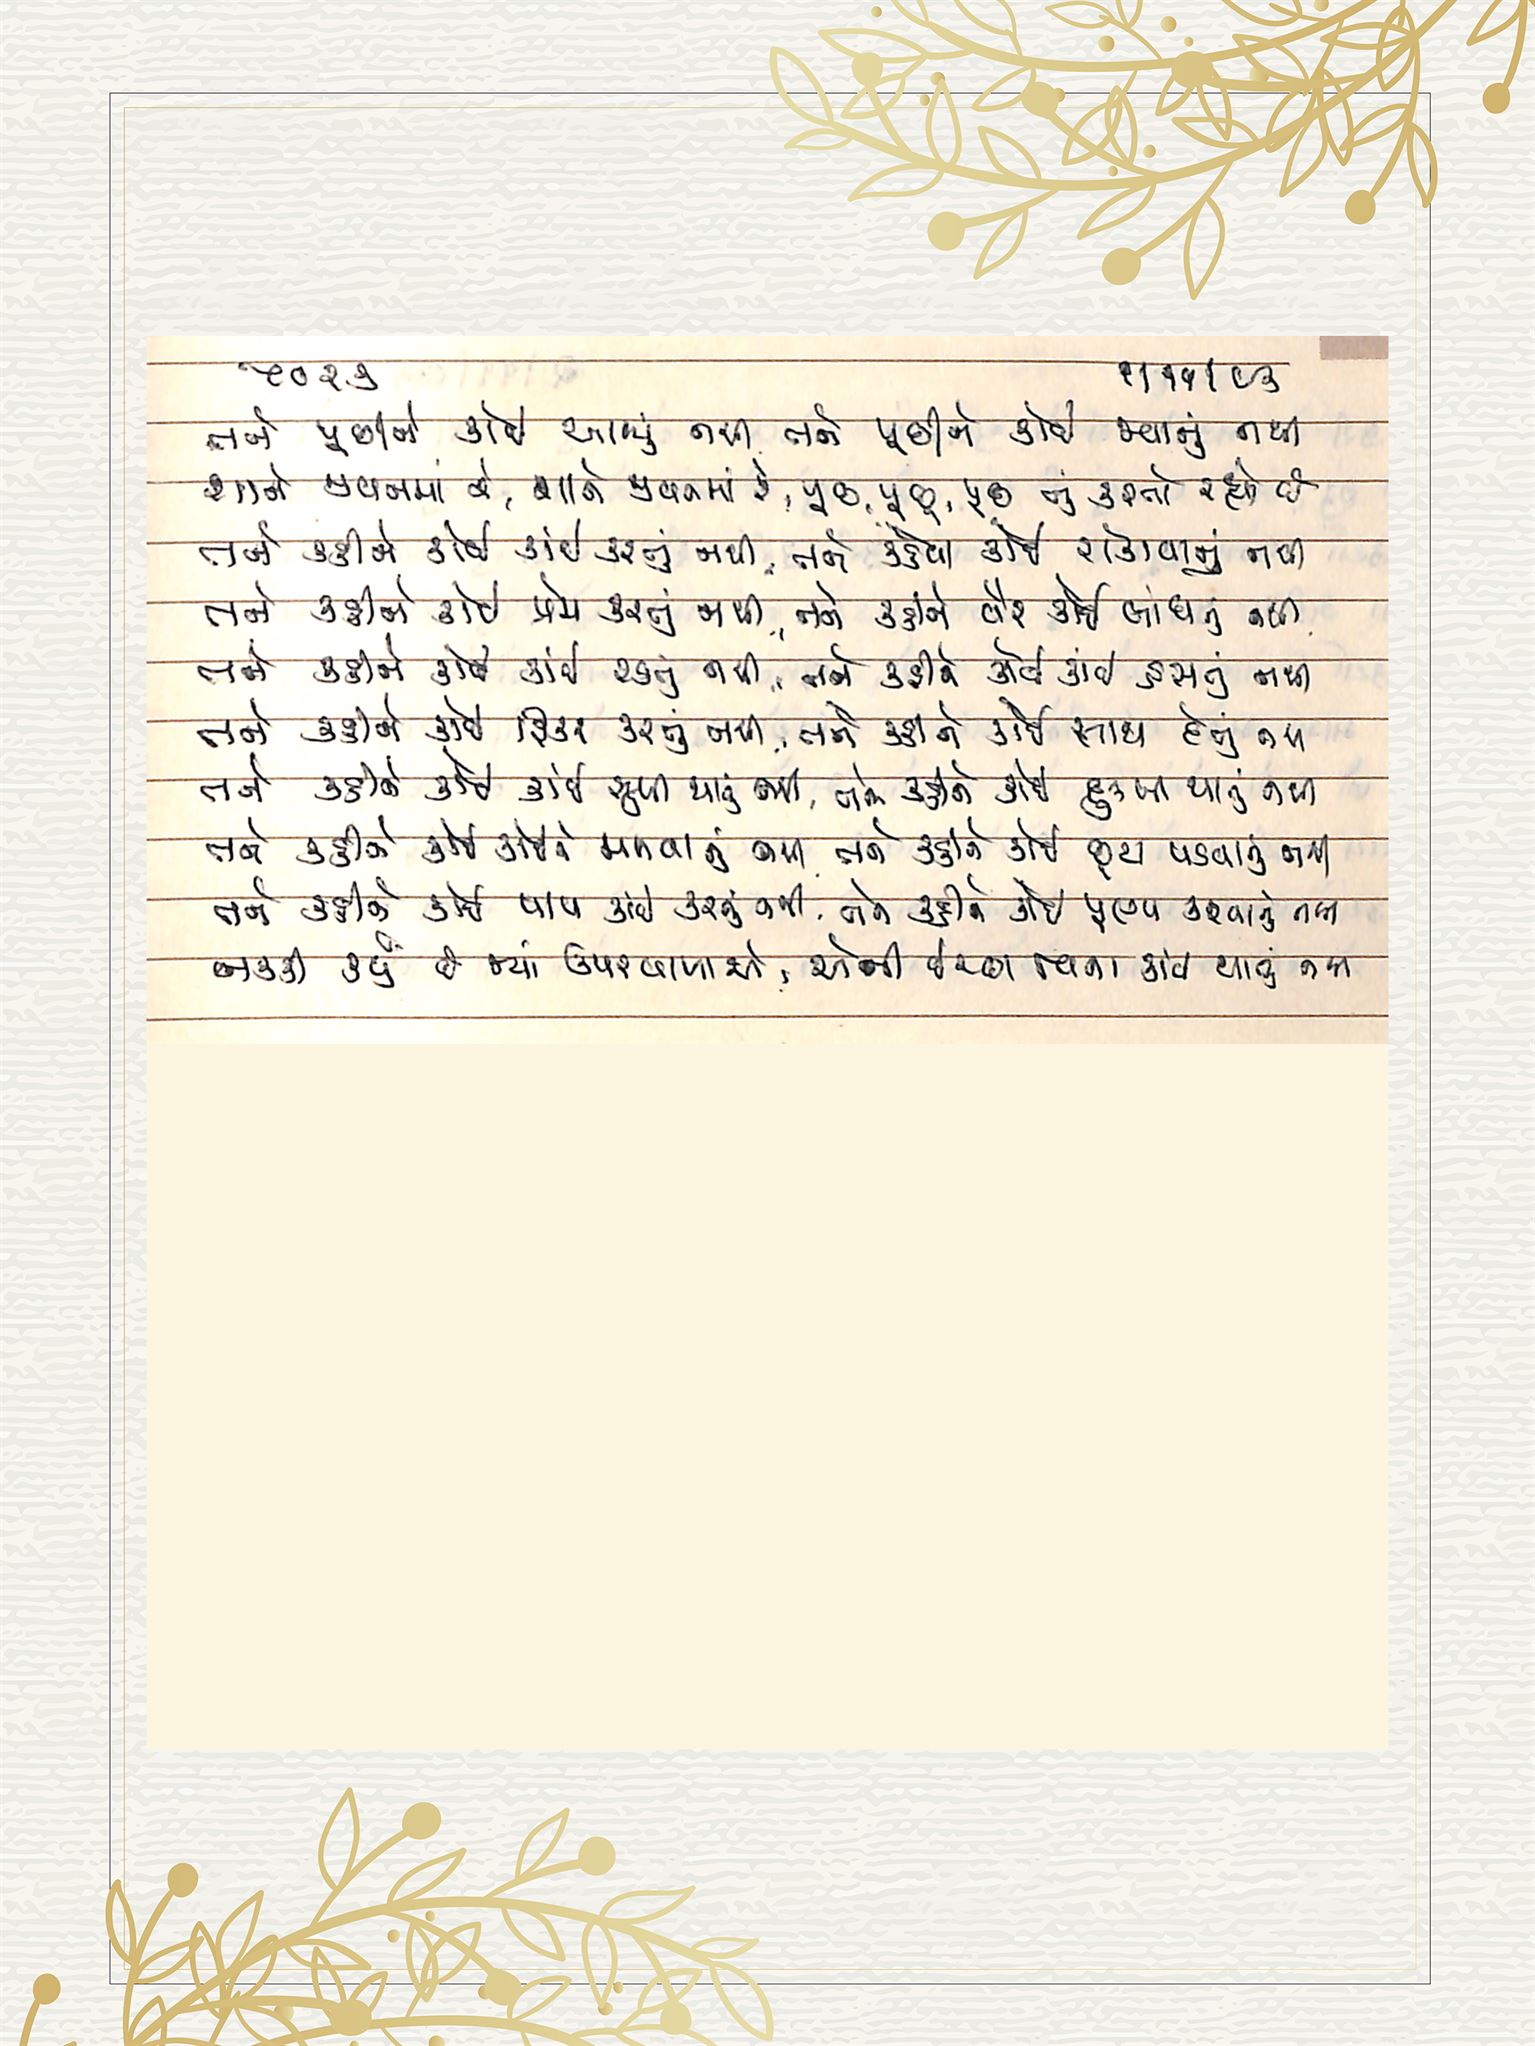 ૫૦૨૩ ૧/૧૧/૯૩
તને પૂછીને કોઈ આવ્યું નથી તને પૂછીને કોઈ જવાનું નથી
શાને જીવનમાં રે, શાને જીવનમાં રે, પૂછ, પૂછ, પૂછ તું કરતો રહ્યો છે
તને કહીને કોઈ કાંઈ કરતું નથી, તને કહેવા કોઈ રોકાવાનું નથી
તને કહીને કોઈ પ્રેમ કરતું નથી, તને કહીને વૈર કોઈ બાંધતું નથી
તને કહીને કોઈ કાંઈ રડતું નથી, તને કહીને કોઈ કાંઈ હસતું નથી
તને કહીને કોઈ ફિકર કરતું નથી, તને કહીને કોઈ સાથ દેતું નથી
તને કહીને કોઈ કાંઈ સુખી થાતું નથી, તને કહીને કોઈ દુઃખી થાતું નથી
તને કહીને કોઈ કોઈને મળવાનું નથી તને કહીને કોઈ છૂટા પડવાનું નથી
તને કહીને કોઈ પાપ કાંઈ કરતું નથી, તને કહીને કોઈ પુણ્ય કરવાનું નથી
નક્કી કર્યું છે જ્યાં ઉપરવાળાએ, એની ઇચ્છા વિના કાંઈ થાતું નથી